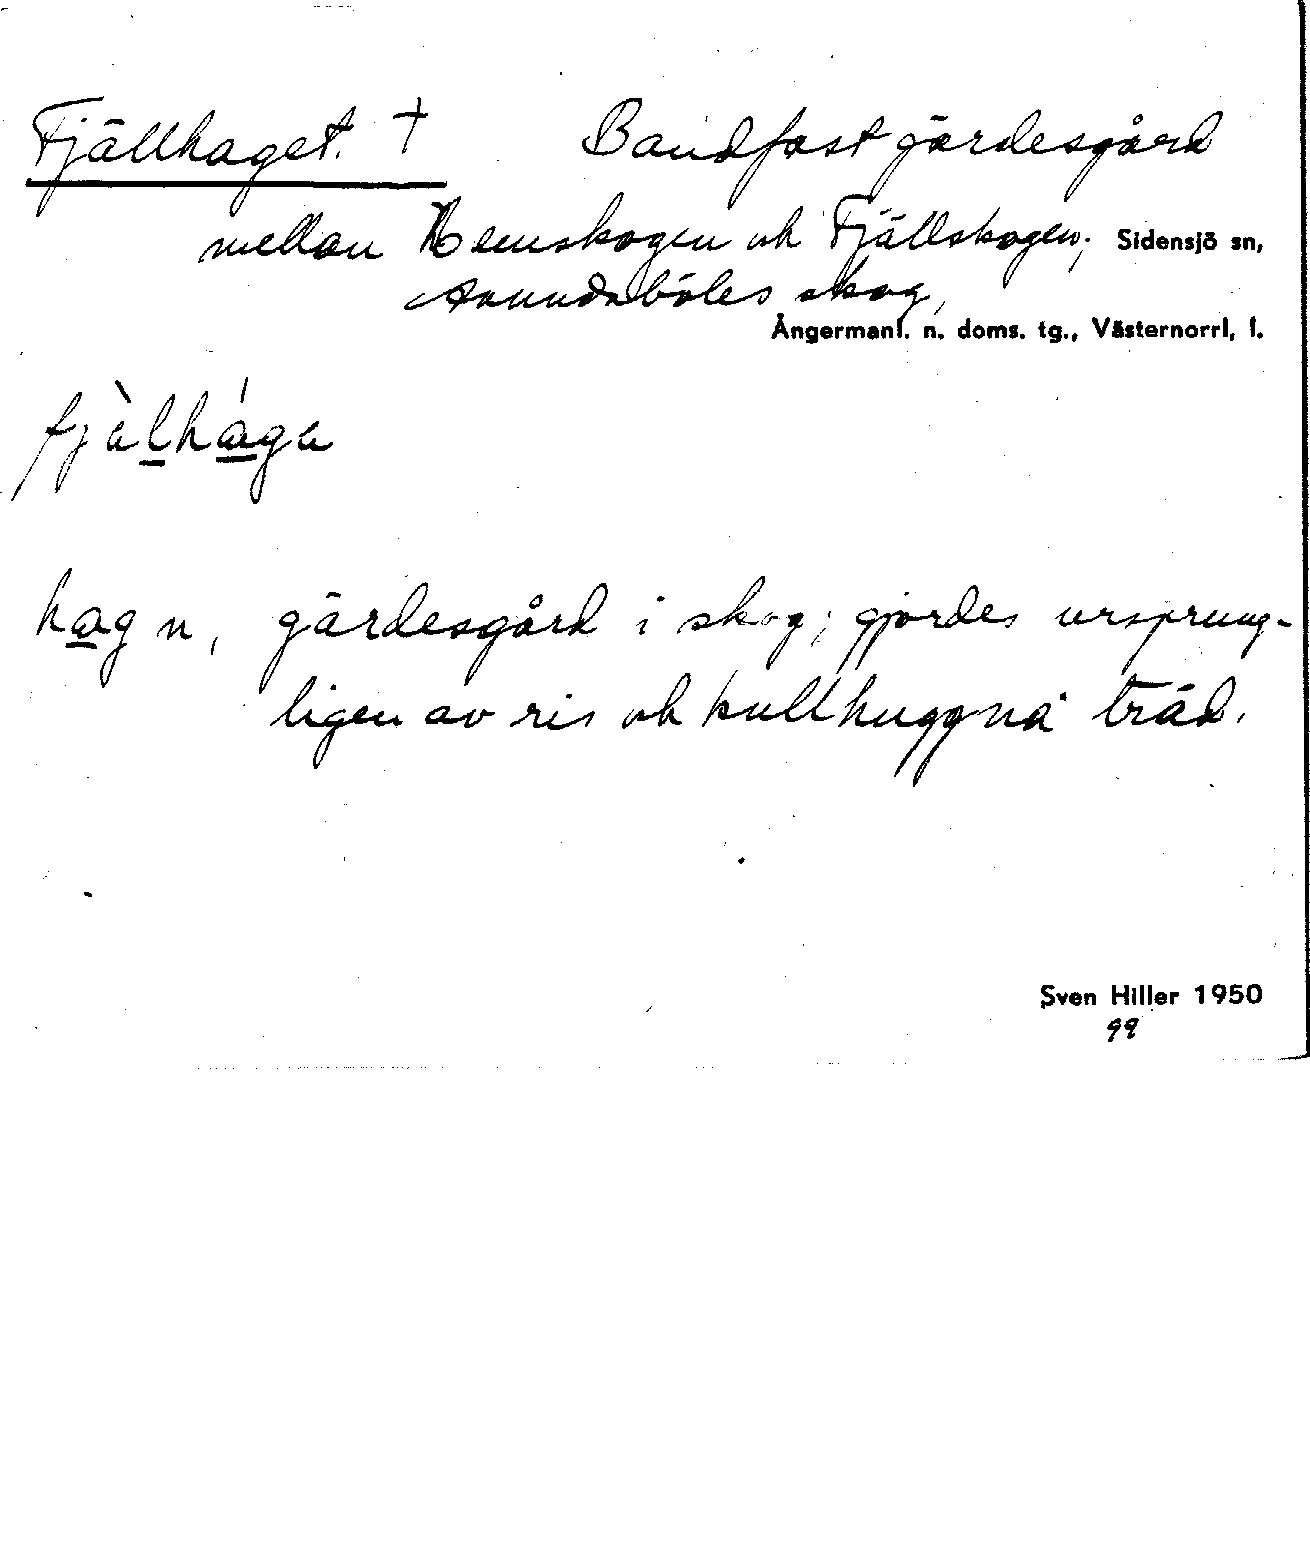 Fjällhaget. † Bandfast gärdesgård
mellan Hemskogen och Fjällskogen; Sidensjö sn,
Anundsböles skog,
Ångermanl. n. doms. tg., Västernorrl, l.
fjàlhága
hag n, gärdesgård i skog; gjordes ursprung-
ligen av ris och kullhuggna träd.
Sven Hiller 1950
99